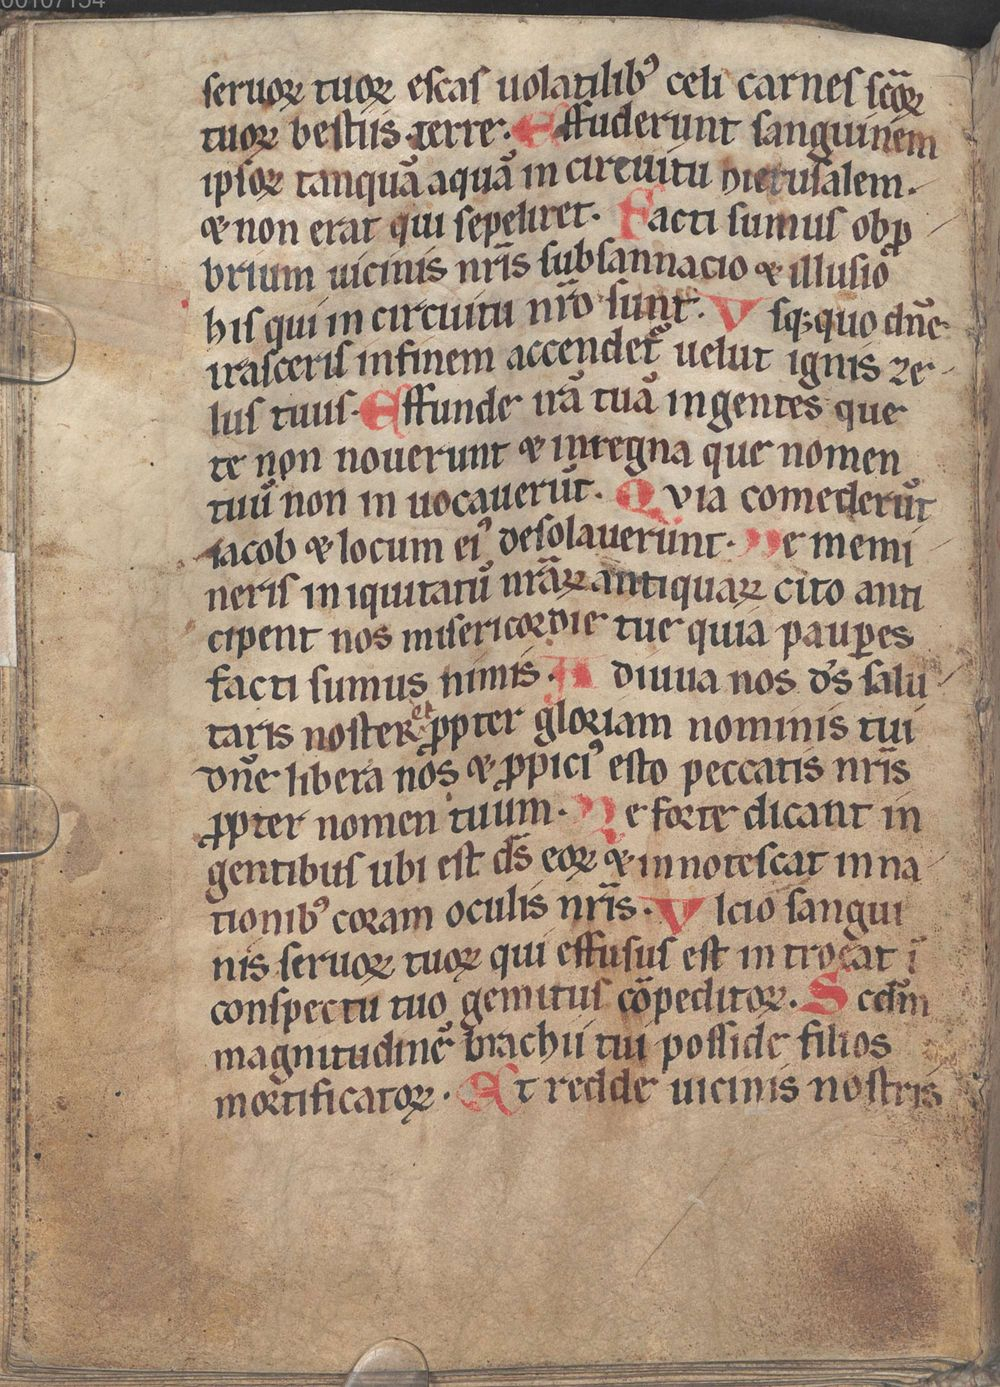 00107154
seruoꝝ tuoꝝ escas uolatilibꝰ celi carnes sc̄oꝝ
tuoꝝ bestiis terre. Effuderunt sanguinem
ipsoꝝ tanquā aquā in circuitu hierusalem.
⁊ non erat qui sepeliret. Facti sumus obꝓ
brium uicinis nr̄is subsannacio ⁊ illusio
his qui in circuitu nr̄o sunt. Vsq;quo dn̄e
irasceris infinem accendet᷑ uelut ignis ze
lus tuus. Effunde irā tuā ingentes que
te non nouerunt ⁊ inregna que nomen
tuū non in uocauerūt. Qvia comederūt
iacob ⁊ locum eiꝰ desolauerunt. Ne memi
neris iniquitatū nr̄aꝝ antiquaꝝ cito anti
cipent nos misericordie tue quia pauꝑes
facti sumus nimis. Adiuua nos d̄s salu
taris noster et ꝓpter gloriam nominis tui
dn̄e libera nos ⁊ ꝓpiciꝰ esto peccatis nr̄is
ꝓpter nomen tuum. Ne forte dicant in
gentibus ubi est d̄s eoꝝ ⁊ innotescat inna
tionibꝰ coram oculis nr̄is. Vlcio sangui
nis seruoꝝ tuoꝝ qui effusus est introeat ī
conspectu tuo gemitus cōpeditoꝝ. Scd̄m
magnitudinē brachii tui posside filios
mortificatoꝝ. Et redde uicinis nostris